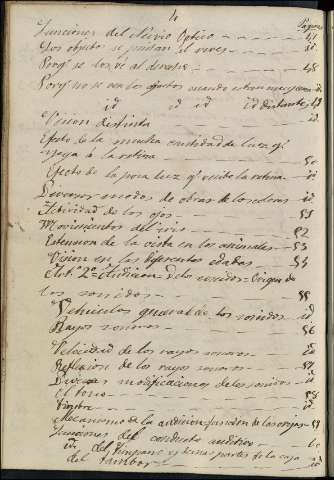 4
Paginas
Funciones del nervio Optico - - - - 47
Los objetos se pintan al reves - - - id.
Porq.e se los vé al derecho - - - - 48
Porq.e no se ven los objetos cuando estan muy
id id id id distantes 49
Vision distinta - - - - id
Efecto de la mucha cantidad de luz q.e
vaya á la retina - - - - 50
Efecto de la poca luz q.e excite la retina - - id
Diversos modos de obrar de los colores - id
Actividad de los ojos - - - - 51
Movimientos del iris - - - - 52
Extension de la vista en los animales - 53
Vision en las diferentes edades - - 54
Art.o 2.o Audicion = Delos sonidos = Origen de
los sonidos - - - - 55
Vehiculos general de los sonidos - id
Rayos sonoros - - - - 56
Velocidad de los rayos sonoros - - id
Reflexion de los rayos sonoros - - 57
Diversas modificaciones delos sonidos - id
El tono - - - - 58
Timbre - - - - id
Mecanismo de la audicion, funcion de las orejas 59
Funciones del conducto auditivo - -
id. del Timpano y demas partes de la caja
del tambor - - - - id